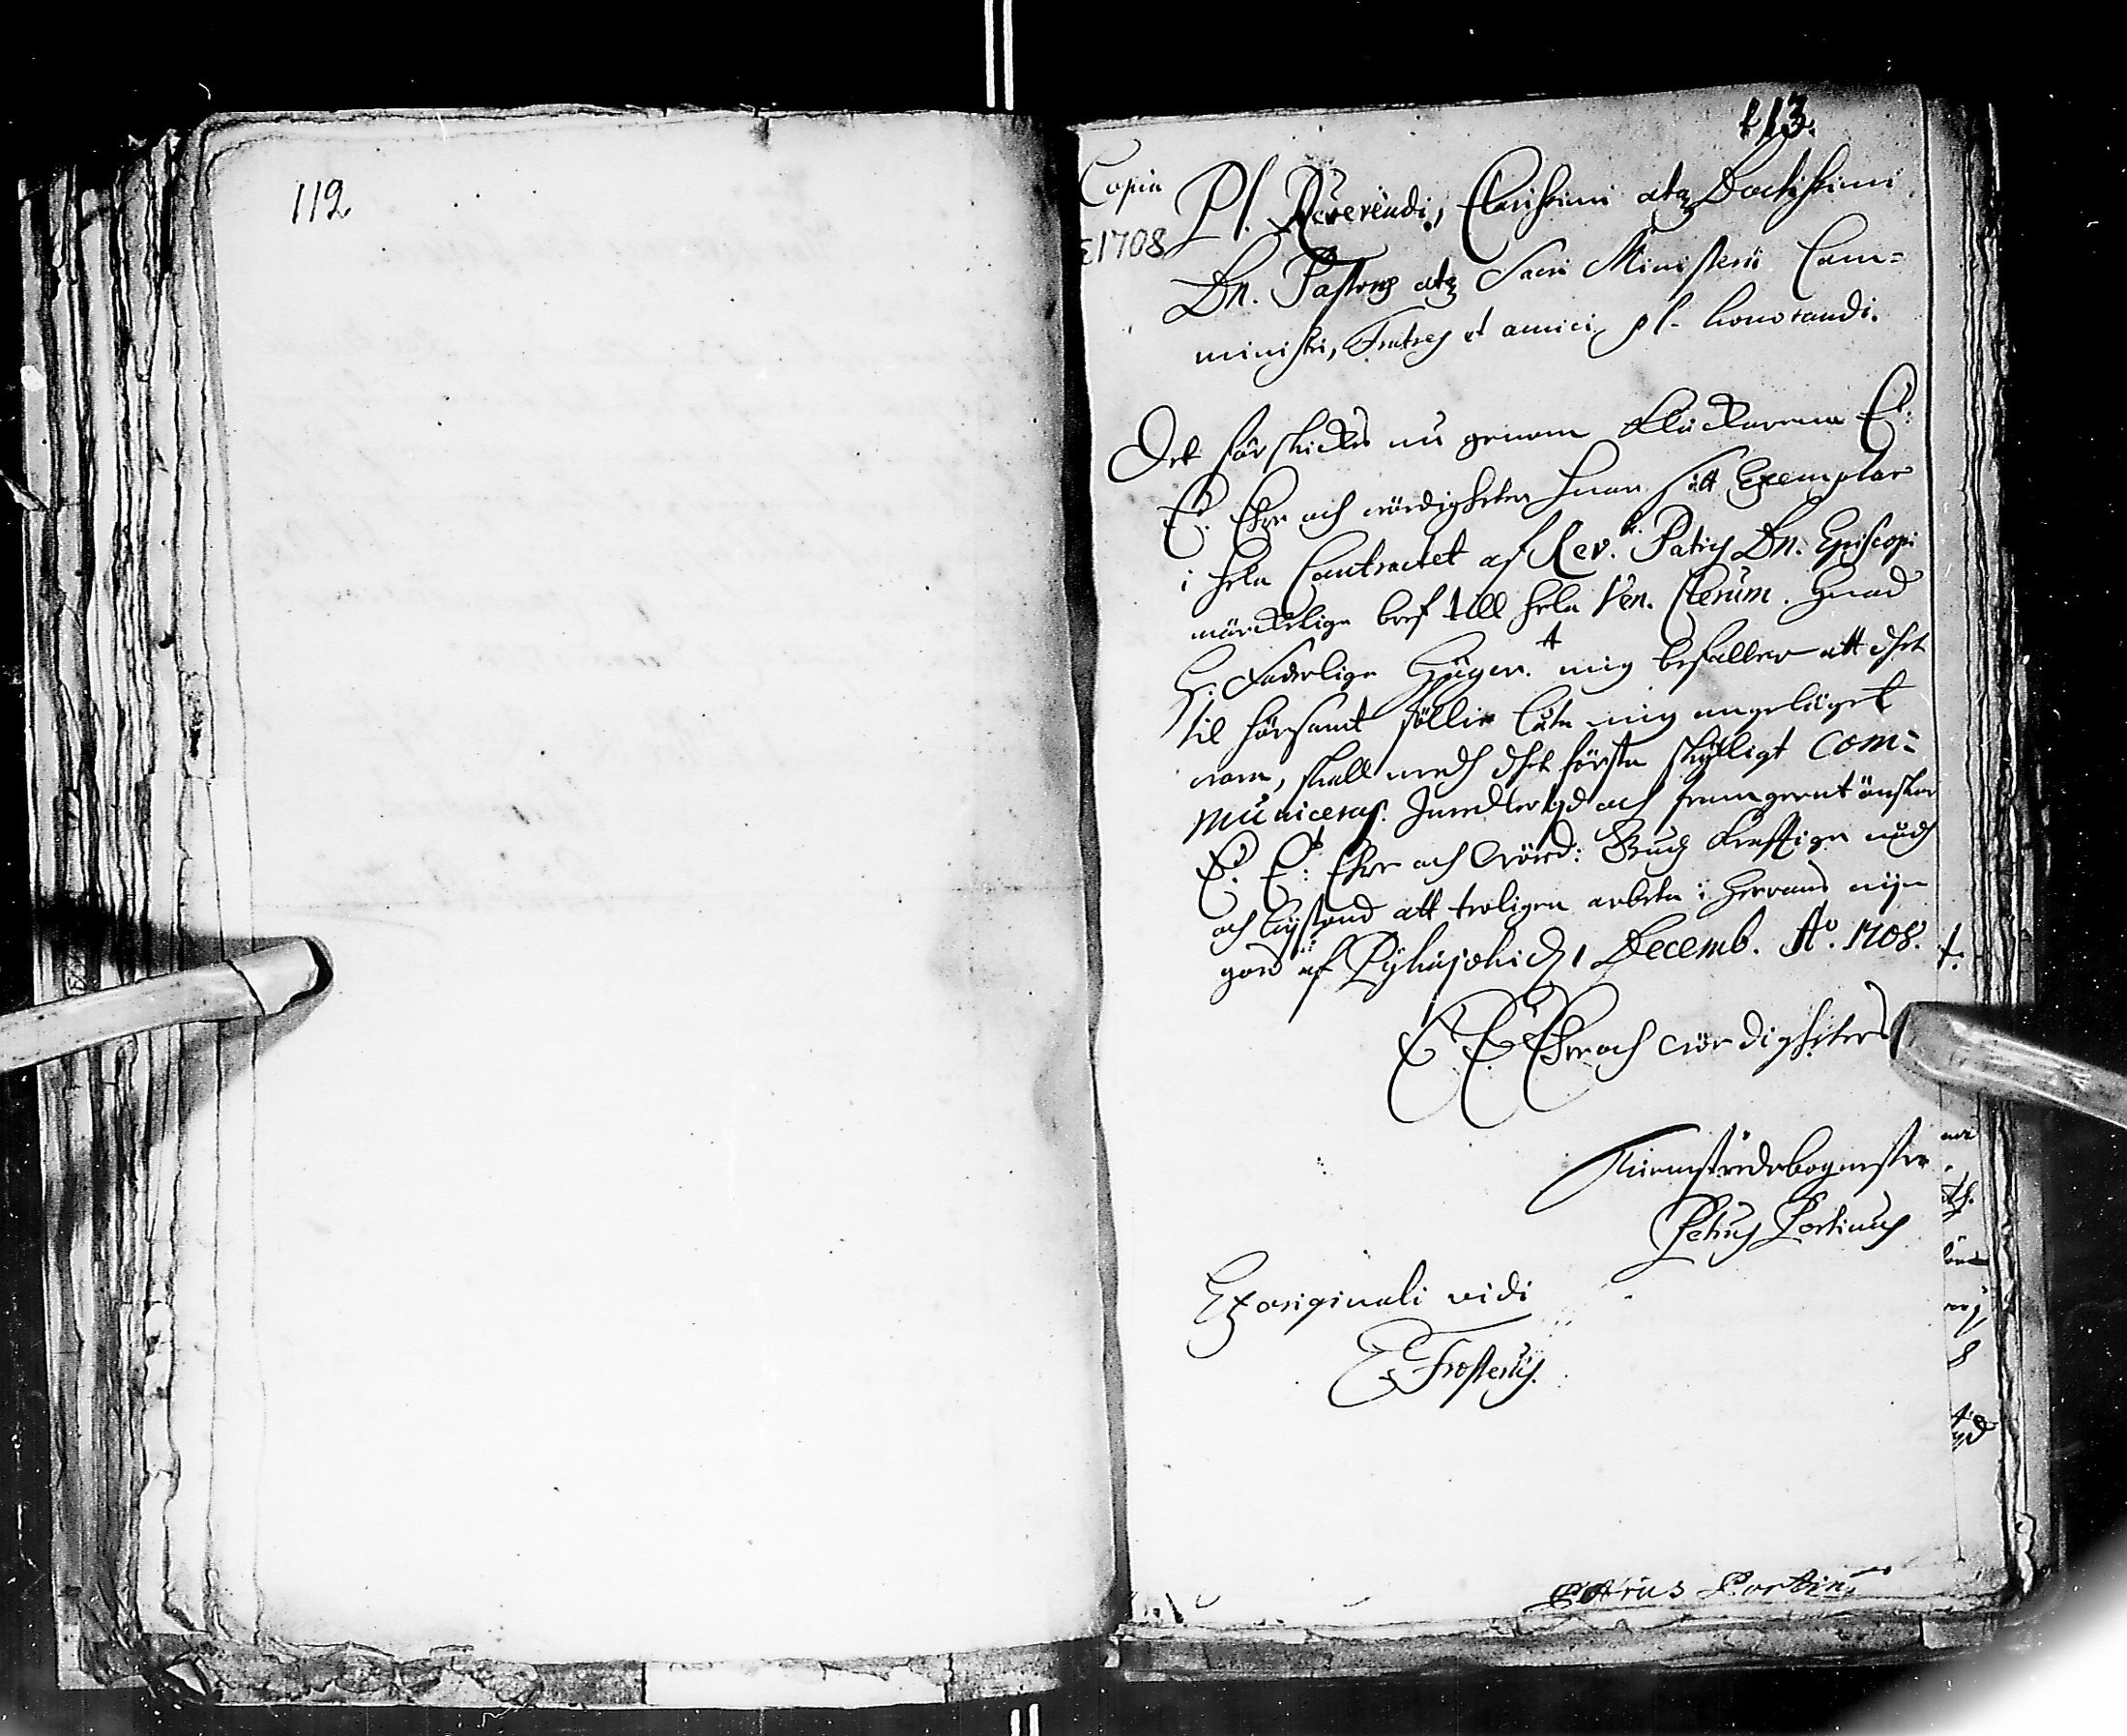 112
113.
Copia
1708
Pl. Reverendi, Clarissimi atq Doctissimi
Dn. Pastores atq Sacri Ministerii Com=
ministri, Fratres et amici pl. honorandi.
Det förskickes nu genom Klåckarena E:
E. Ehr och wördigheter huar sitt Exemplar
i hela Contractet af Rev. Patris Dn. Episcopi
märckelige bref till hela Ven. Clerum. Huad
H. Faderlige Höger. mig befaller att dhet
til hörsamtföllie låta mig angeläget
wara, skall medh dhet första skylligt com=
municeras. Imedlertijd och framgeent önskar
E. E: Ehr och Wörd: Gudz krafftige nådh
och bijstånd att troligen arbeta i Herrans wijn
gård af Pyhäjoki d 1 Decemb. Ao. 1708.
E E Ehr och wördigheters
Tienstskyldebogneste
Petrus Portinus
Ex originali vidi
E. Frosterus.
Petrus Portin